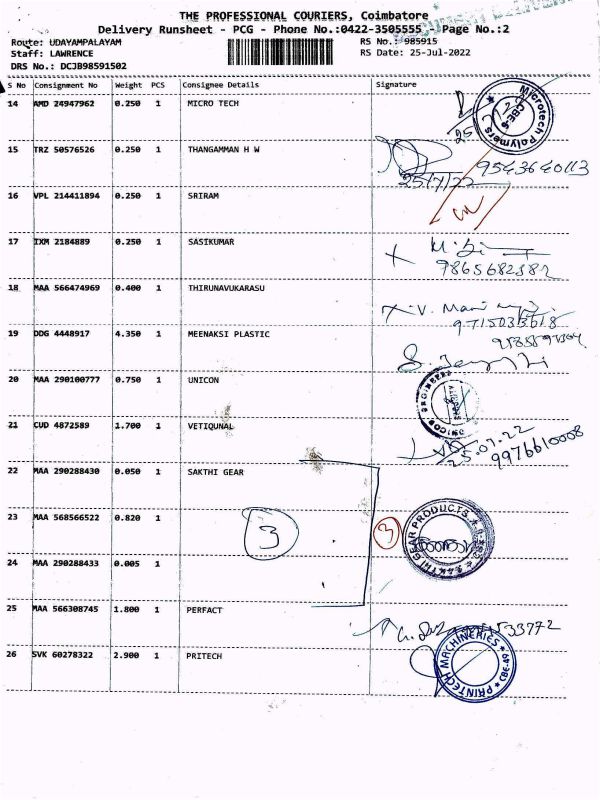 THE PROFESSIONAL COURIERS, Coimbatore
Delivery Runsheet - PCG - Phone No.:0422-3505555 - Page No.:2
Route: UDAYAMPALAYAM
Staff: LAWRENCE
DRS No.: DCJB98591502
RS No.: 985915
RS Date: 25-Jul-2022
S No Consignment No Weight PCS Consignee Details Signature
14 AMD 24947962 0.250 1 MICRO TECH
Microtech Polymers ★ CBE
25
15 TRZ 50576526 0.250 1 THANGAMMAN H W
25/7/22
16 VPL 214411894 0.250 1 SRIRAM
17 IXM 2184889 0.250 1 SASIKUMAR
18 MAA 566474969 0.400 1 THIRUNAVUKARASU
19 DDG 4448917 4.350 1 MEENAKSI PLASTIC
20 MAA 290100777 0.750 1 UNICON
21 CUD 4872589 1.700 1 VETIQUNAL
25.07.22
9976610008
22 MAA 290288430 0.050 1 SAKTHI GEAR
23 MAA 568566522 0.820 1
3 3
SAKTHI GEAR PRODUCTS
24 MAA 290288433 0.005 1
25 MAA 566308745 1.800 1 PERFACT
26 SVK 60278322 2.900 1 PRITECH
PRINTECH MACHINERIES ★ CBE-49 ★